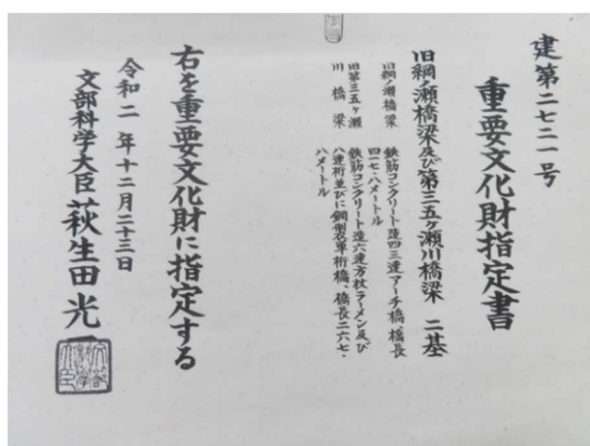 建第二七二一号
重要文化財指定書
旧綱ノ瀬橋梁及び第三五ヶ瀬川橋梁 二基
旧綱ノ瀬橋梁 鉄筋コンクリート造四三連アーチ橋、橋長
四一七・八メートル
旧第三五ヶ瀬 鉄筋コンクリート造六連方杖ラーメン及び
川橋梁 八連桁並びに鋼製単桁橋、橋長二六七・
八メートル
右を重要文化財に指定する
令和二年十二月二十三日
文部科学大臣 萩生田光一
文部科学大臣